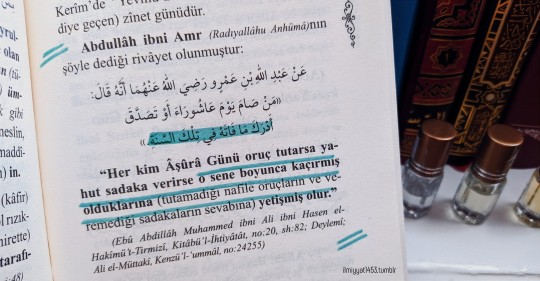 Kerîm'de "Yevmü
diye geçen) zînet günüdür.
Abdullâh ibni Amr (Radıyallâhu Anhümâ)nın
şöyle dediği rivâyet olunmuştur:
عَنْ عَبْدِ اللهِ بْنِ عَمْرٍو رَضِيَ اللهُ عَنْهُمَا أَنَّهُ قَالَ:
«مَنْ صَامَ يَوْمَ عَاشُورَاءَ أَوْ تَصَدَّقَ
أَدْرَكَ مَا فَاتَهُ فِي تِلْكَ السَّنَةِ.»
"Her kim Âşûrâ Günü oruç tutarsa ya-
hut sadaka verirse o sene boyunca kaçırmış
olduklarına (tutamadığı nafile oruçların ve ve-
remediği sadakaların sevabına) yetişmiş olur."
(Ebû Abdillâh Muhammed ibni Ali ibni Hasen el-
Hakîmü't-Tirmizî, Kitâbü'l-İhtiyâtât, no:20, sh:82; Deylemî;
Ali el-Müttakî, Kenzü'l-'ummâl, no:24255)
olan
(tü-
) üm-
k gibi
neslin,
maddî-
) in.
(kâfir)
ol rızık-
hirette)
tarafı-
ilmiyyat1453.tumblr